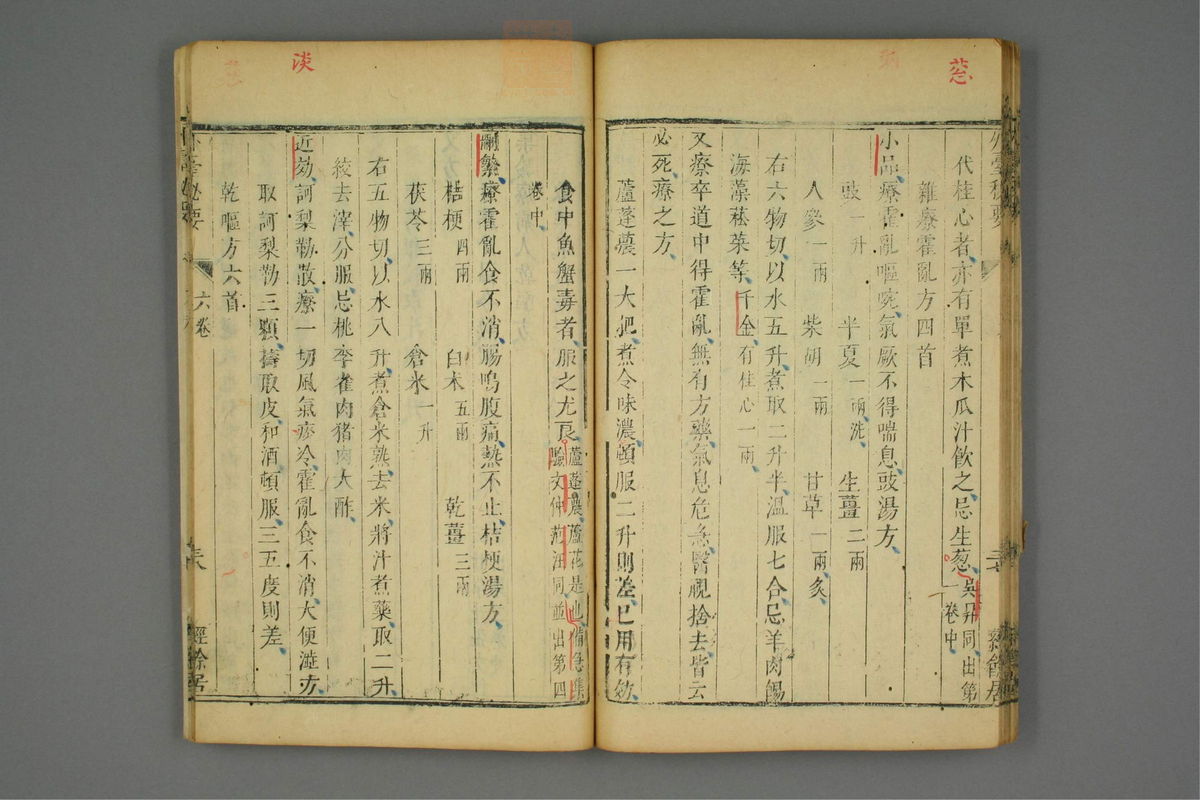 葱
代桂心者亦有單煮木瓜汁飲之忌生葱吳昇同出第一卷中
雜療霍亂方四首
小品療霍亂嘔啘氣厥不得喘息豉湯方
豉一升 半夏一兩洗 生薑二兩
人參一兩 柴胡一兩 甘草一兩炙
右六物切以水五升煮取二升半溫服七合忌羊肉餳
海藻菘菜等千金有桂心一兩
又療卒道中得霍亂無有方藥氣息危急醫視捨去皆云
必死療之方
蘆蓬蕽一大把煮令味濃頓服二升則差已用有効
淡
食中魚蟹毒者服之尤良蘆蓬蕽蘆花是也備急集
驗文仲范汪同並出第四
卷中
刪繁療霍亂食不消腸鳴腹痛熱不止桔梗湯方
桔梗四兩 白朮五兩 乾薑三兩
茯苓三兩 倉米一升
右五物切以水八升煮倉米熟去米將汁煮藥取二升
絞去滓分服忌桃李雀肉猪肉大酢
近効訶梨勒散療一切風氣痰冷霍亂食不消大便澁方
取訶梨勒三顆擣取皮和酒頓服三五度則差
乾嘔方六首
六卷
經餘居